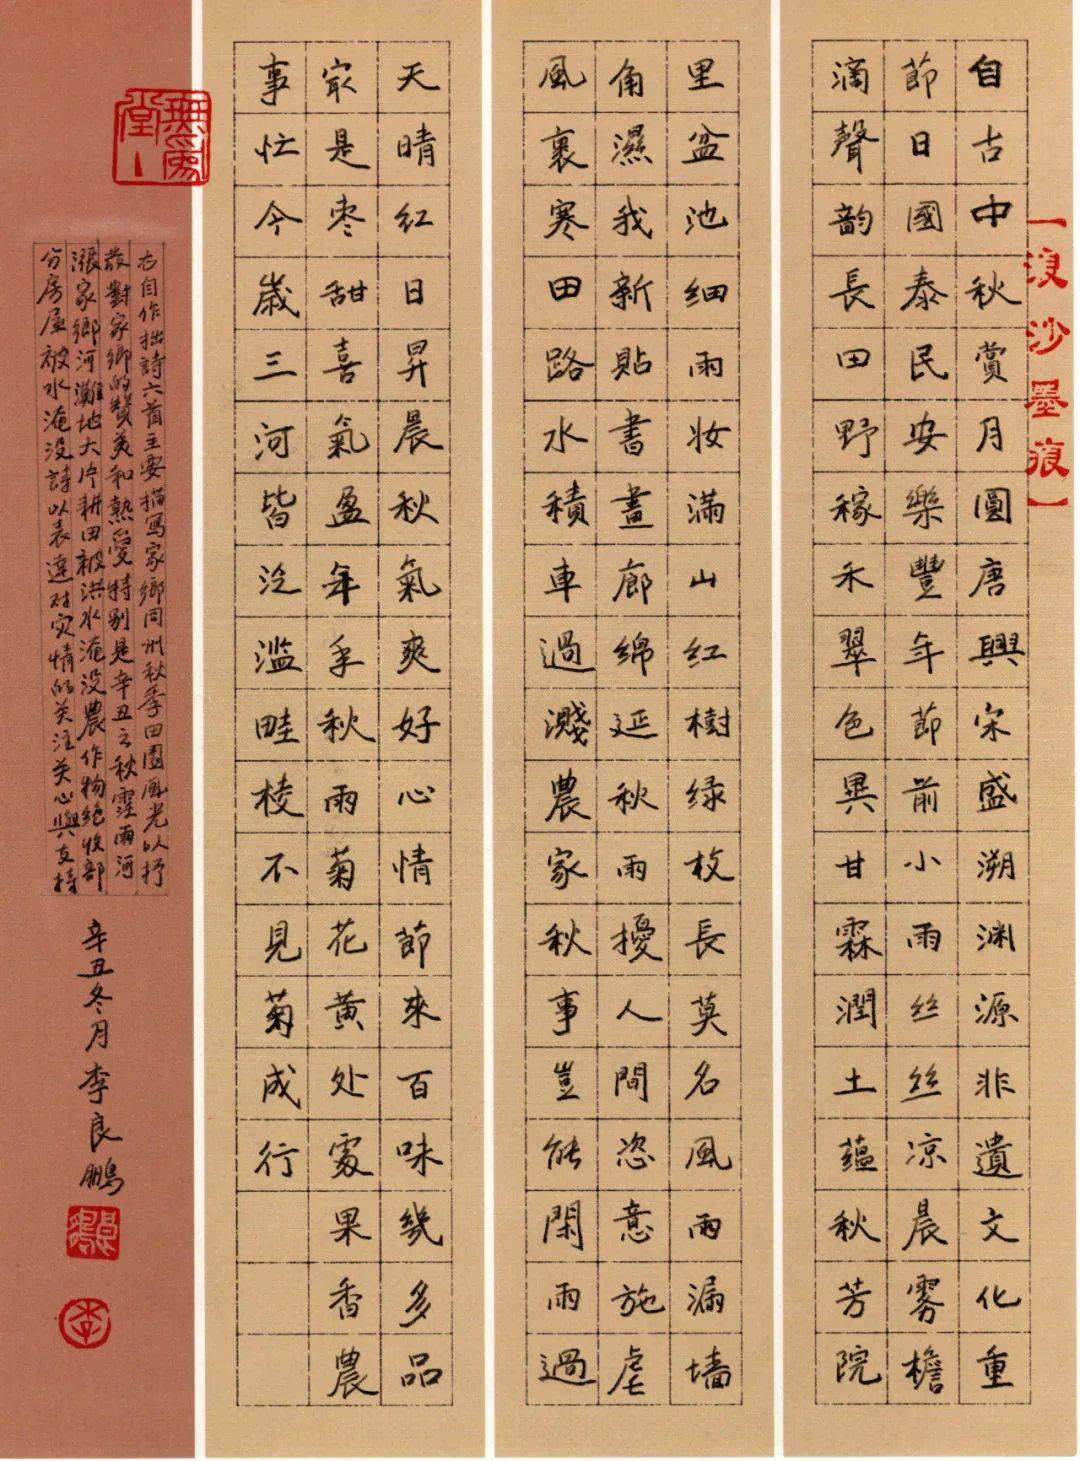 自古中秋賞月圓唐興宋盛溯渊源非遺文化重
節日國泰民安樂豐年節前小雨丝丝凉晨雾檐
滴聲韵長田野稼禾翠色異甘霖潤土蕴秋芳院
里盆池细雨妆满山红樹绿枚長莫名風雨漏墙
角濕我新貼書畫廊绵延秋雨擾人間恣意施虐
風裹寒田路水積車過濺農家秋事豈能閑雨過
天晴红日昇晨秋氣爽好心情節來百味幾多品
最是枣甜喜氣盈年年秋雨菊花黄处處果香農
事忙今歲三河皆泛滥畦棱不見菊成行
右自作拙詩六首主要描寫家鄉同州秋季田園風光以抒
發對家鄉的贊美和熱愛特别是辛丑之秋霪雨河
漲家鄉河灘地大片耕田被洪水淹没農作物绝收部
分房屋被水淹没詩以表達对灾情的关注关心與支持
辛丑冬月李良鵬
【浪沙墨痕】
無為堂
李